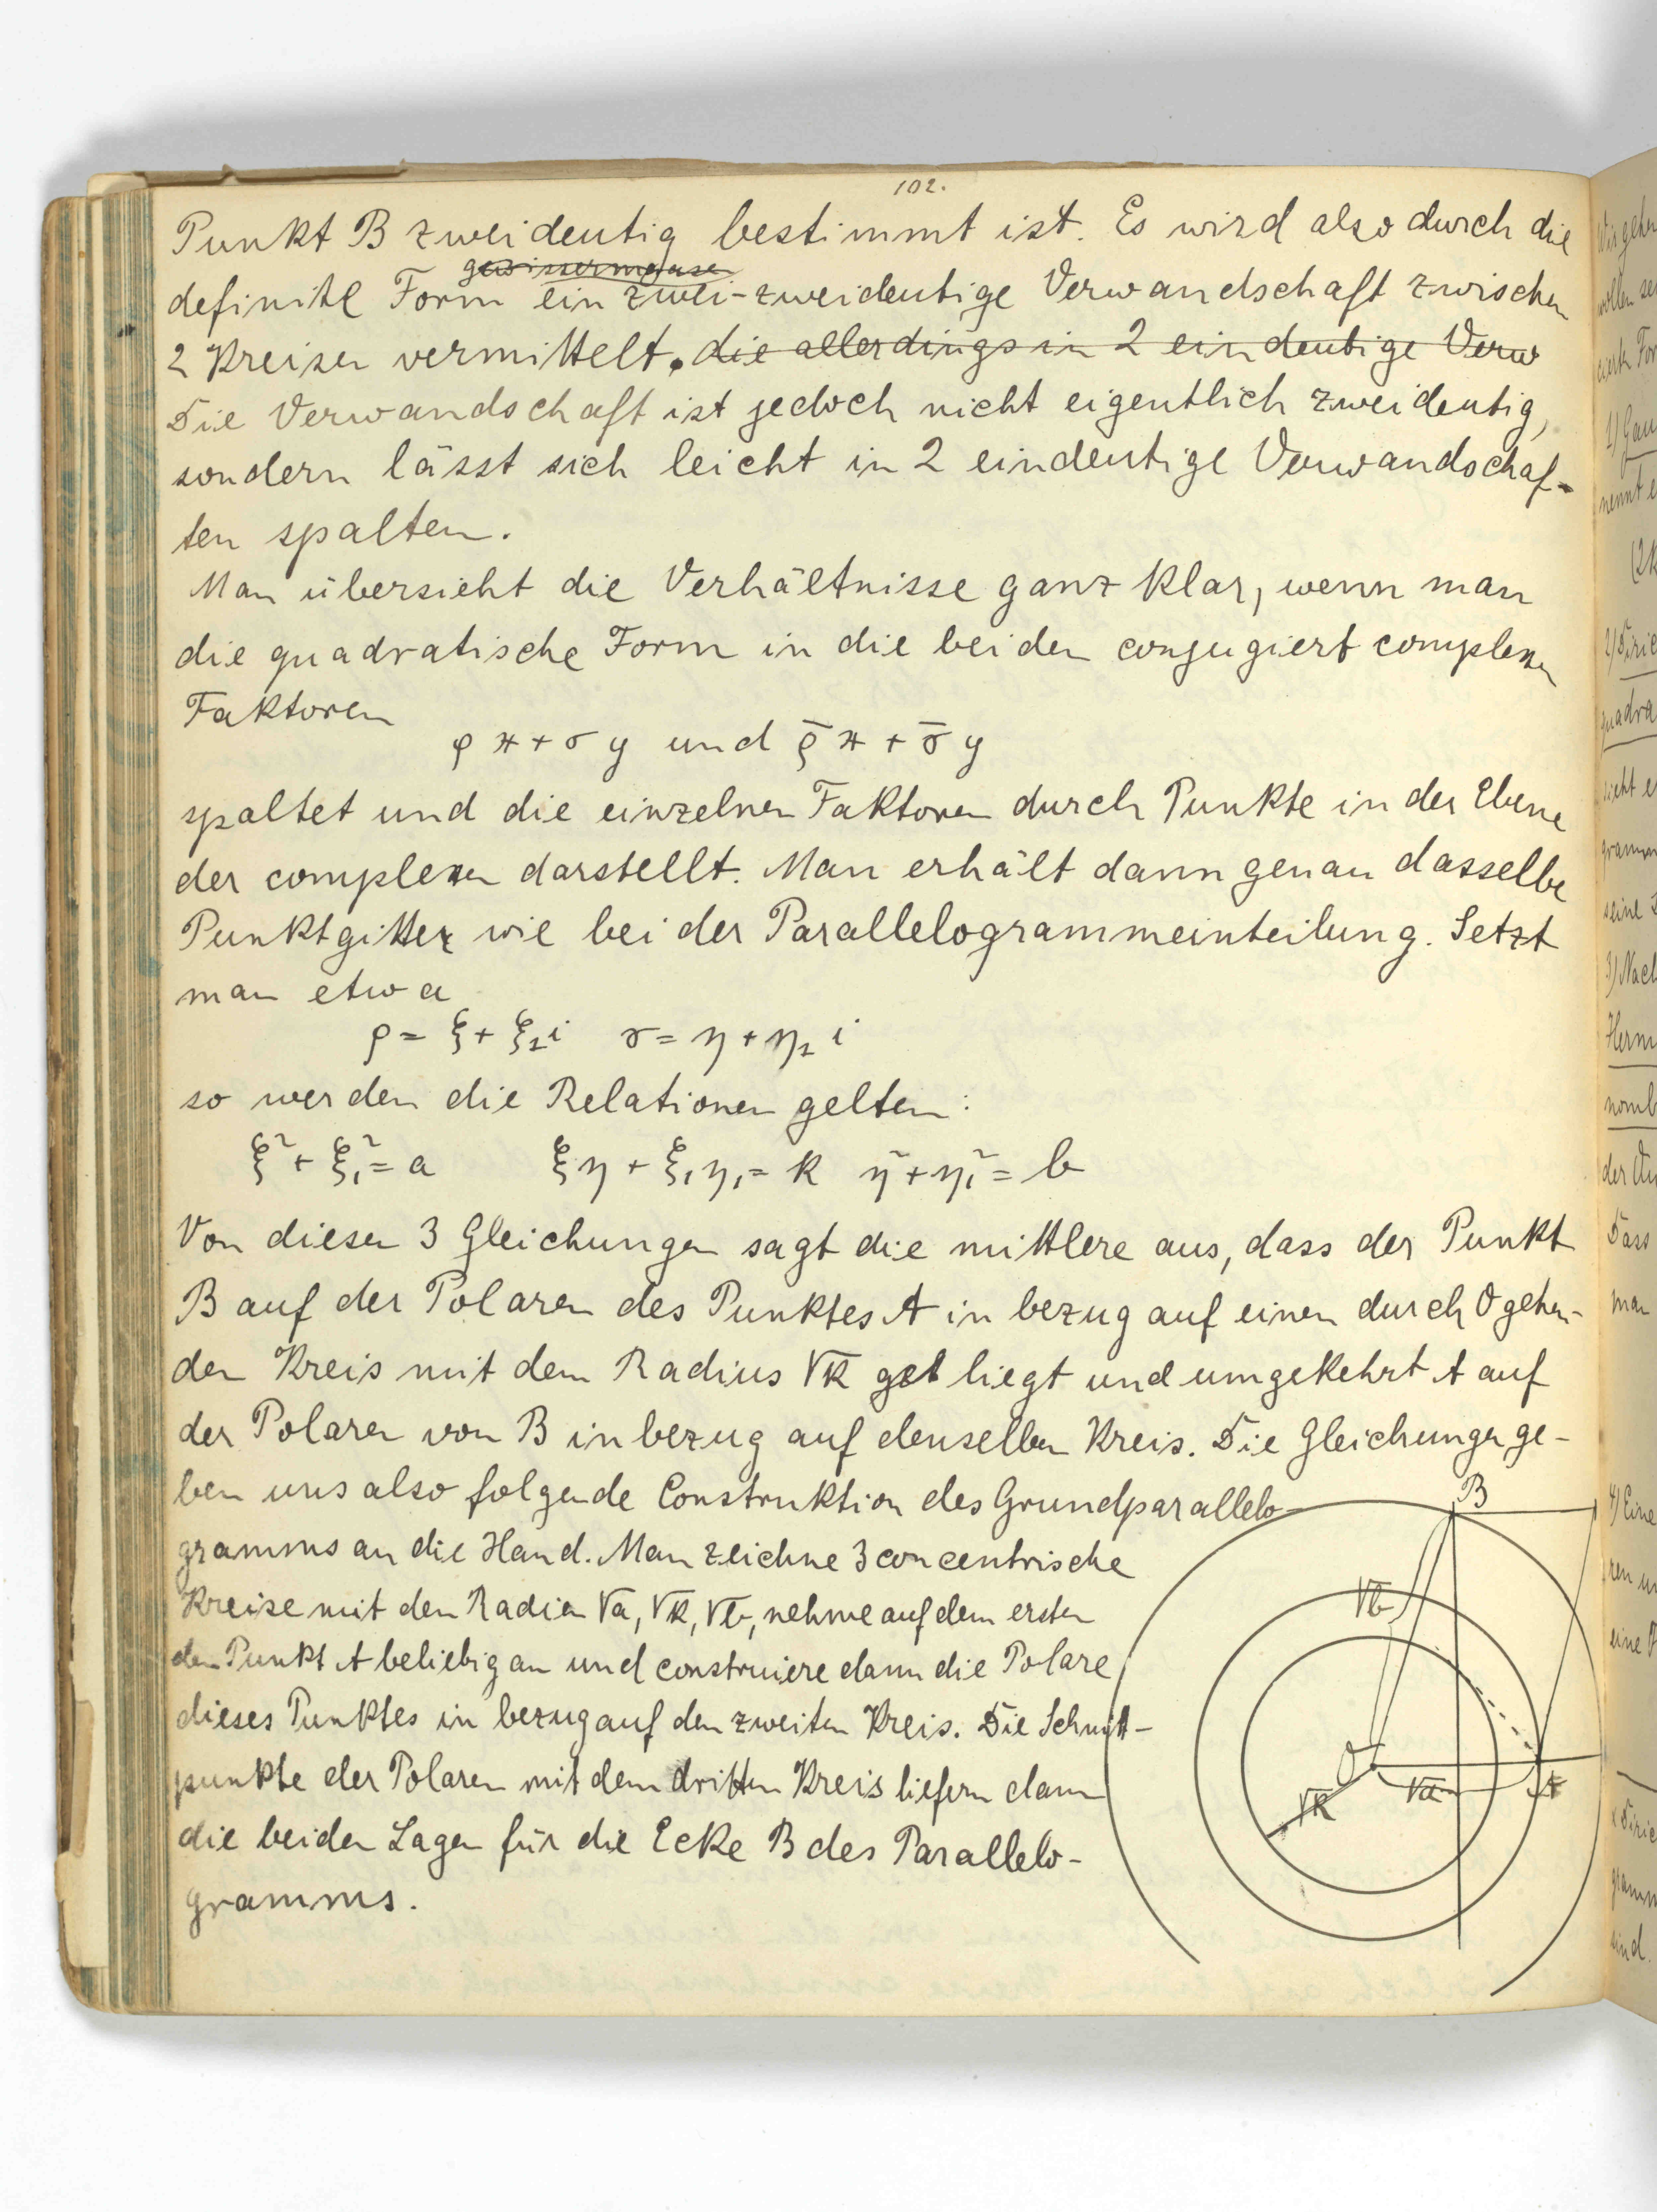 102.
Punkt B zweideutig bestimmt ist. Es wird also durch die
gewissermasen
definite Form ein zwei-zweideutige Verwandschaft zwischen
2 Kreisen vermittelt. die allerdings in 2 eindeutige Verw
Die Verwandschaft ist jedoch nicht eigentlich zweideutig,
sondern lässt sich leicht in 2 eindeutige Verwandschaf-
ten spalten.
Man übersieht die Verhältnisse ganz klar, wenn man
die quadratische Form in die beiden conjugiert complexen
Faktoren
ρx+σy und ρ̄x+σ̄y
spaltet und die einzelnen Faktoren durch Punkte in der Ebene
der complexen darstellt. Man erhält dann genau dasselbe
Punktgitter wie bei der Parallelogrammeinteilung. Setzt
man etwa
ρ = ξ + ξ₁i σ = η + η₁i
so werden die Relationen gelten:
ξ² + ξ₁² = a ξη + ξ₁η₁ = k η² + η₁² = b
Von diesen 3 Gleichungen sagt die mittlere aus, dass der Punkt
B auf der Polaren des Punktes A in bezug auf einen durch O gehen-
den Kreis mit dem Radius √k liegt und umgekehrt A auf
der Polaren von B in bezug auf denselben Kreis. Die Gleichungen ge-
ben uns also folgende Construktion des Grundparallelo-
gramms an die Hand. Man zeichne 3 concentrische
Kreise mit den Radien √a, √k, √b, nehme auf dem ersten
den Punkt A beliebig an und construiere dann die Polare
dieses Punktes in bezug auf den zweiten Kreis. Die Schnitt-
punkte der Polaren mit dem dritten Kreis liefern dann
die beiden Lagen für die Ecke B des Parallelo-
gramms.
B
√b
O
√a
A
√k